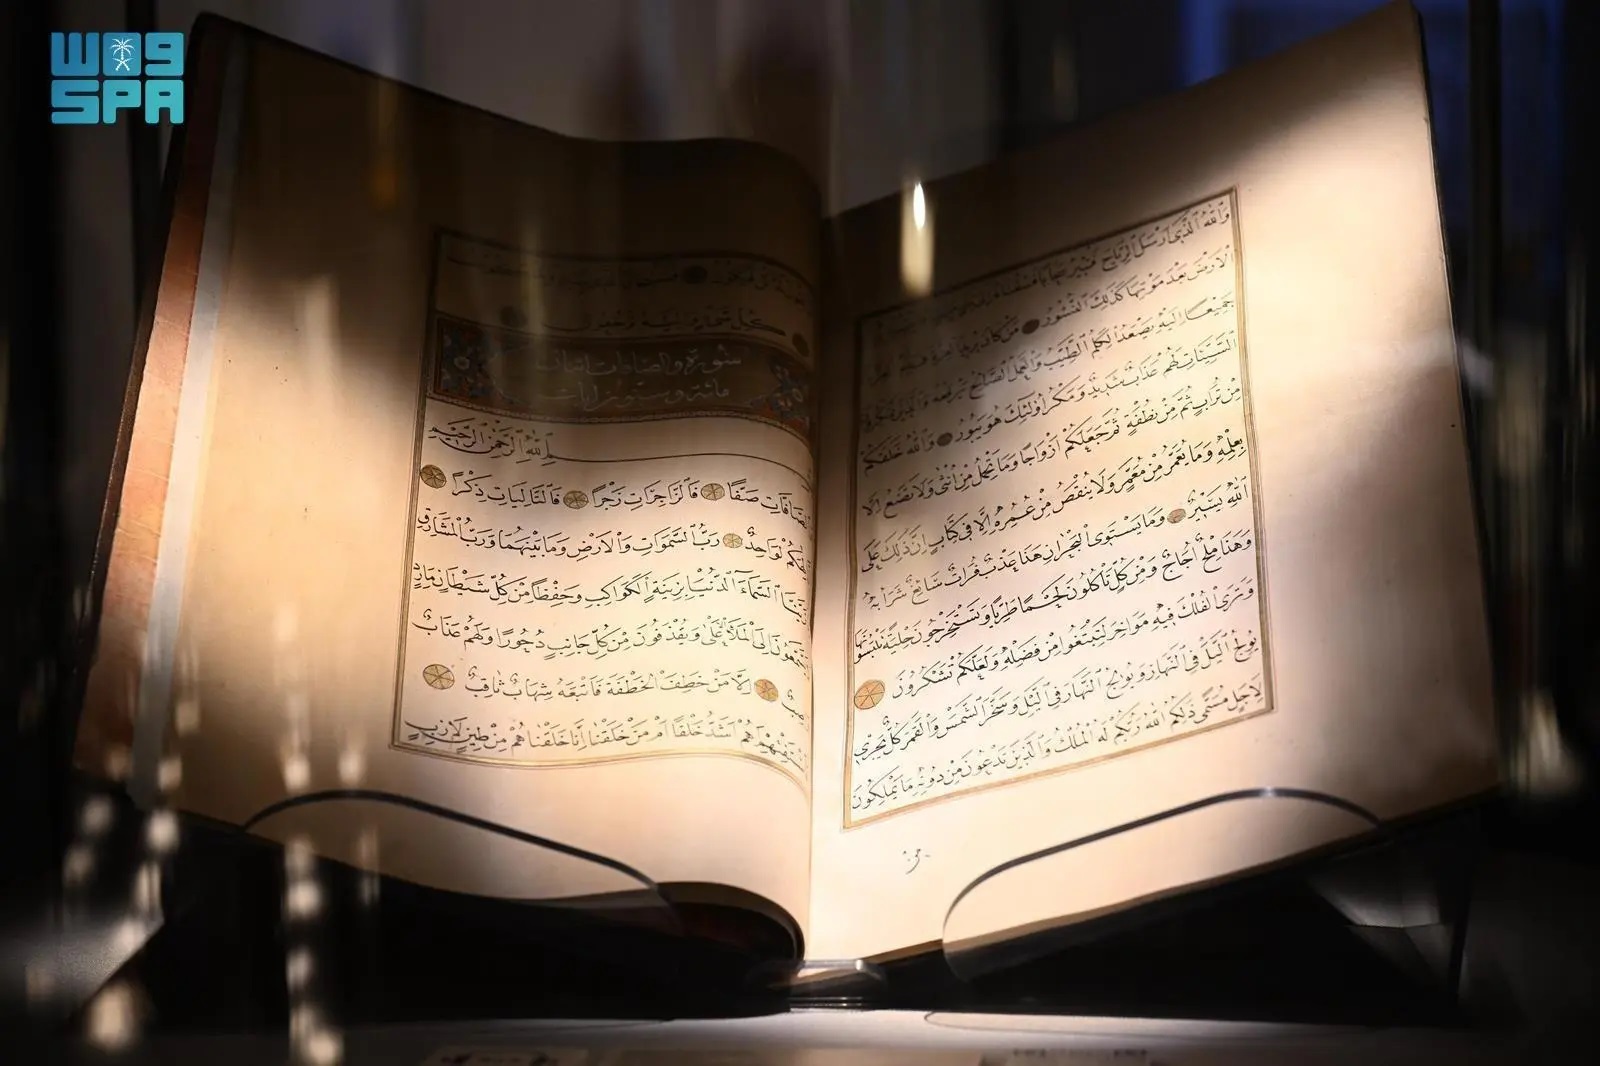 WAS
SPA
وَاللَّهُ الَّذِي اَرْسَلَ الرِّيَاحَ فَتُثِيرُ سَحَابًا فَسُقْنَاهُ
الْاَرْضَ بَعْدَ مَوْتِهَا كَذَلِكَ النُّشُورُ مَنْ كَانَ يُرِيدُ الْعِزَّةَ
جَمِيعًا اِلَيْهِ يَصْعَدُ الْكَلِمُ الطَّيِّبُ وَالْعَمَلُ الصَّالِحُ يَرْفَعُهُ وَالَّذِينَ يَمْكُرُونَ
السَّيِّئَاتِ لَهُمْ عَذَابٌ شَدِيدٌ وَمَكْرُ اُولَئِكَ هُوَ يَبُورُ وَاللَّهُ خَلَقَكُمْ
مِنْ تُرَابٍ ثُمَّ مِنْ نُطْفَةٍ ثُمَّ جَعَلَكُمْ اَزْوَاجًا وَمَا تَحْمِلُ مِنْ اُنْثَى وَلَا تَضَعُ اِلَّا
بِعِلْمِهِ وَمَا يُعَمَّرُ مِنْ مُعَمَّرٍ وَلَا يُنْقَصُ مِنْ عُمُرِهِ اِلَّا فِي كِتَابٍ اِنَّ ذَلِكَ عَلَى
اللَّهِ يَسِيرٌ وَمَا يَسْتَوِي الْبَحْرَانِ هَذَا عَذْبٌ فُرَاتٌ سَائِغٌ شَرَابُهُ
وَهَذَا مِلْحٌ اُجَاجٌ وَمِنْ كُلٍّ تَأْكُلُونَ لَحْمًا طَرِيًّا وَتَسْتَخْرِجُونَ حِلْيَةً تَلْبَسُونَهَا
وَتَرَى الْفُلْكَ فِيهِ مَوَاخِرَ لِتَبْتَغُوا مِنْ فَضْلِهِ وَلَعَلَّكُمْ تَشْكُرُونَ
يُولِجُ اللَّيْلَ فِي النَّهَارِ وَيُولِجُ النَّهَارَ فِي اللَّيْلِ وَسَخَّرَ الشَّمْسَ وَالْقَمَرَ كُلٌّ يَجْرِي
لِاَجَلٍ مُسَمًّى ذَلِكُمُ اللَّهُ رَبُّكُمْ لَهُ الْمُلْكُ وَالَّذِينَ تَدْعُونَ مِنْ دُونِهِ مَا يَمْلِكُونَ
مِنْ
سورة والصافات
مائة
بِسْمِ اللَّهِ الرَّحْمَنِ الرَّحِيمِ
وَالصَّافَّاتِ صَفًّا فَالزَّاجِرَاتِ زَجْرًا فَالتَّالِيَاتِ ذِكْرًا
اِلَهَكُمْ لَوَاحِدٌ رَبُّ السَّمَوَاتِ وَالْاَرْضِ وَمَا بَيْنَهُمَا وَرَبُّ الْمَشَارِقِ
زَيَّنَّا السَّمَاءَ الدُّنْيَا بِزِينَةٍ الْكَوَاكِبِ وَحِفْظًا مِنْ كُلِّ شَيْطَانٍ مَارِدٍ
يَسَّمَّعُونَ اِلَى الْمَلَاِ الْاَعْلَى وَيُقْذَفُونَ مِنْ كُلِّ جَانِبٍ دُحُورًا وَلَهُمْ عَذَابٌ
وَاصِبٌ اِلَّا مَنْ خَطِفَ الْخَطْفَةَ فَاَتْبَعَهُ شِهَابٌ ثَاقِبٌ
فَاسْتَفْتِهِمْ اَهُمْ اَشَدُّ خَلْقًا اَمْ مَنْ خَلَقْنَا اِنَّا خَلَقْنَاهُمْ مِنْ طِينٍ لَازِبٍ